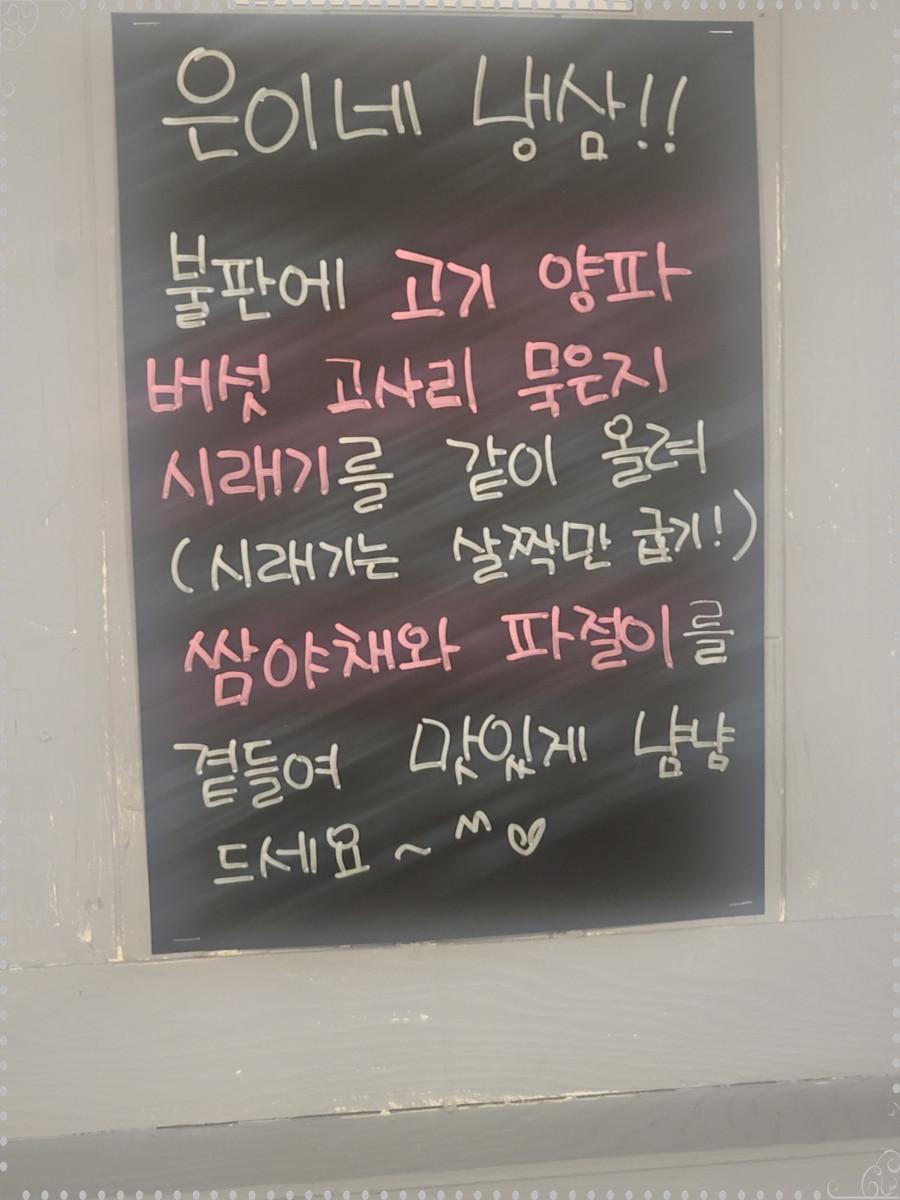 은이네 냉삼!!
불판에 고기 양파
버섯 고사리 묵은지
시래기를 같이 올려
(시래기는 살짝만 굽기!)
쌈야채와 파절이를
곁들여 맛있게 냠냠
드세요~^^♡